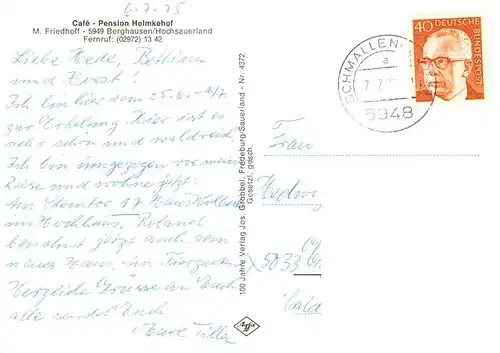 6.7.75
Café - Pension Helmkehof
M. Friedhoff - 5949 Berghausen/Hochsauerland
Fernruf: (02972) 13 42
Liebe Hede, Bettina
und Horst!
Ich bin hier vom 25.6.-
zur Erholung. Hier ist es
sehr schön und waldreich.
Ich bin umgezogen vor meiner
Reise und wohne jetzt:
Am 17 Haus
im Hochhaus. Roland
bewohnt jetzt auch sein
neues Haus, im
Herzliche Grüsse an Euch
alle sendet Euch
100 Jahre Verlag Jos. Grobbel, Fredeburg/Sauerland - Nr. 4372
Gesetzl. gesch.
Agfa
SCHMALLEN
a
7.7.
5948
40 DEUTSCHE
BUNDESPOST
Frau
Hedwig
5033